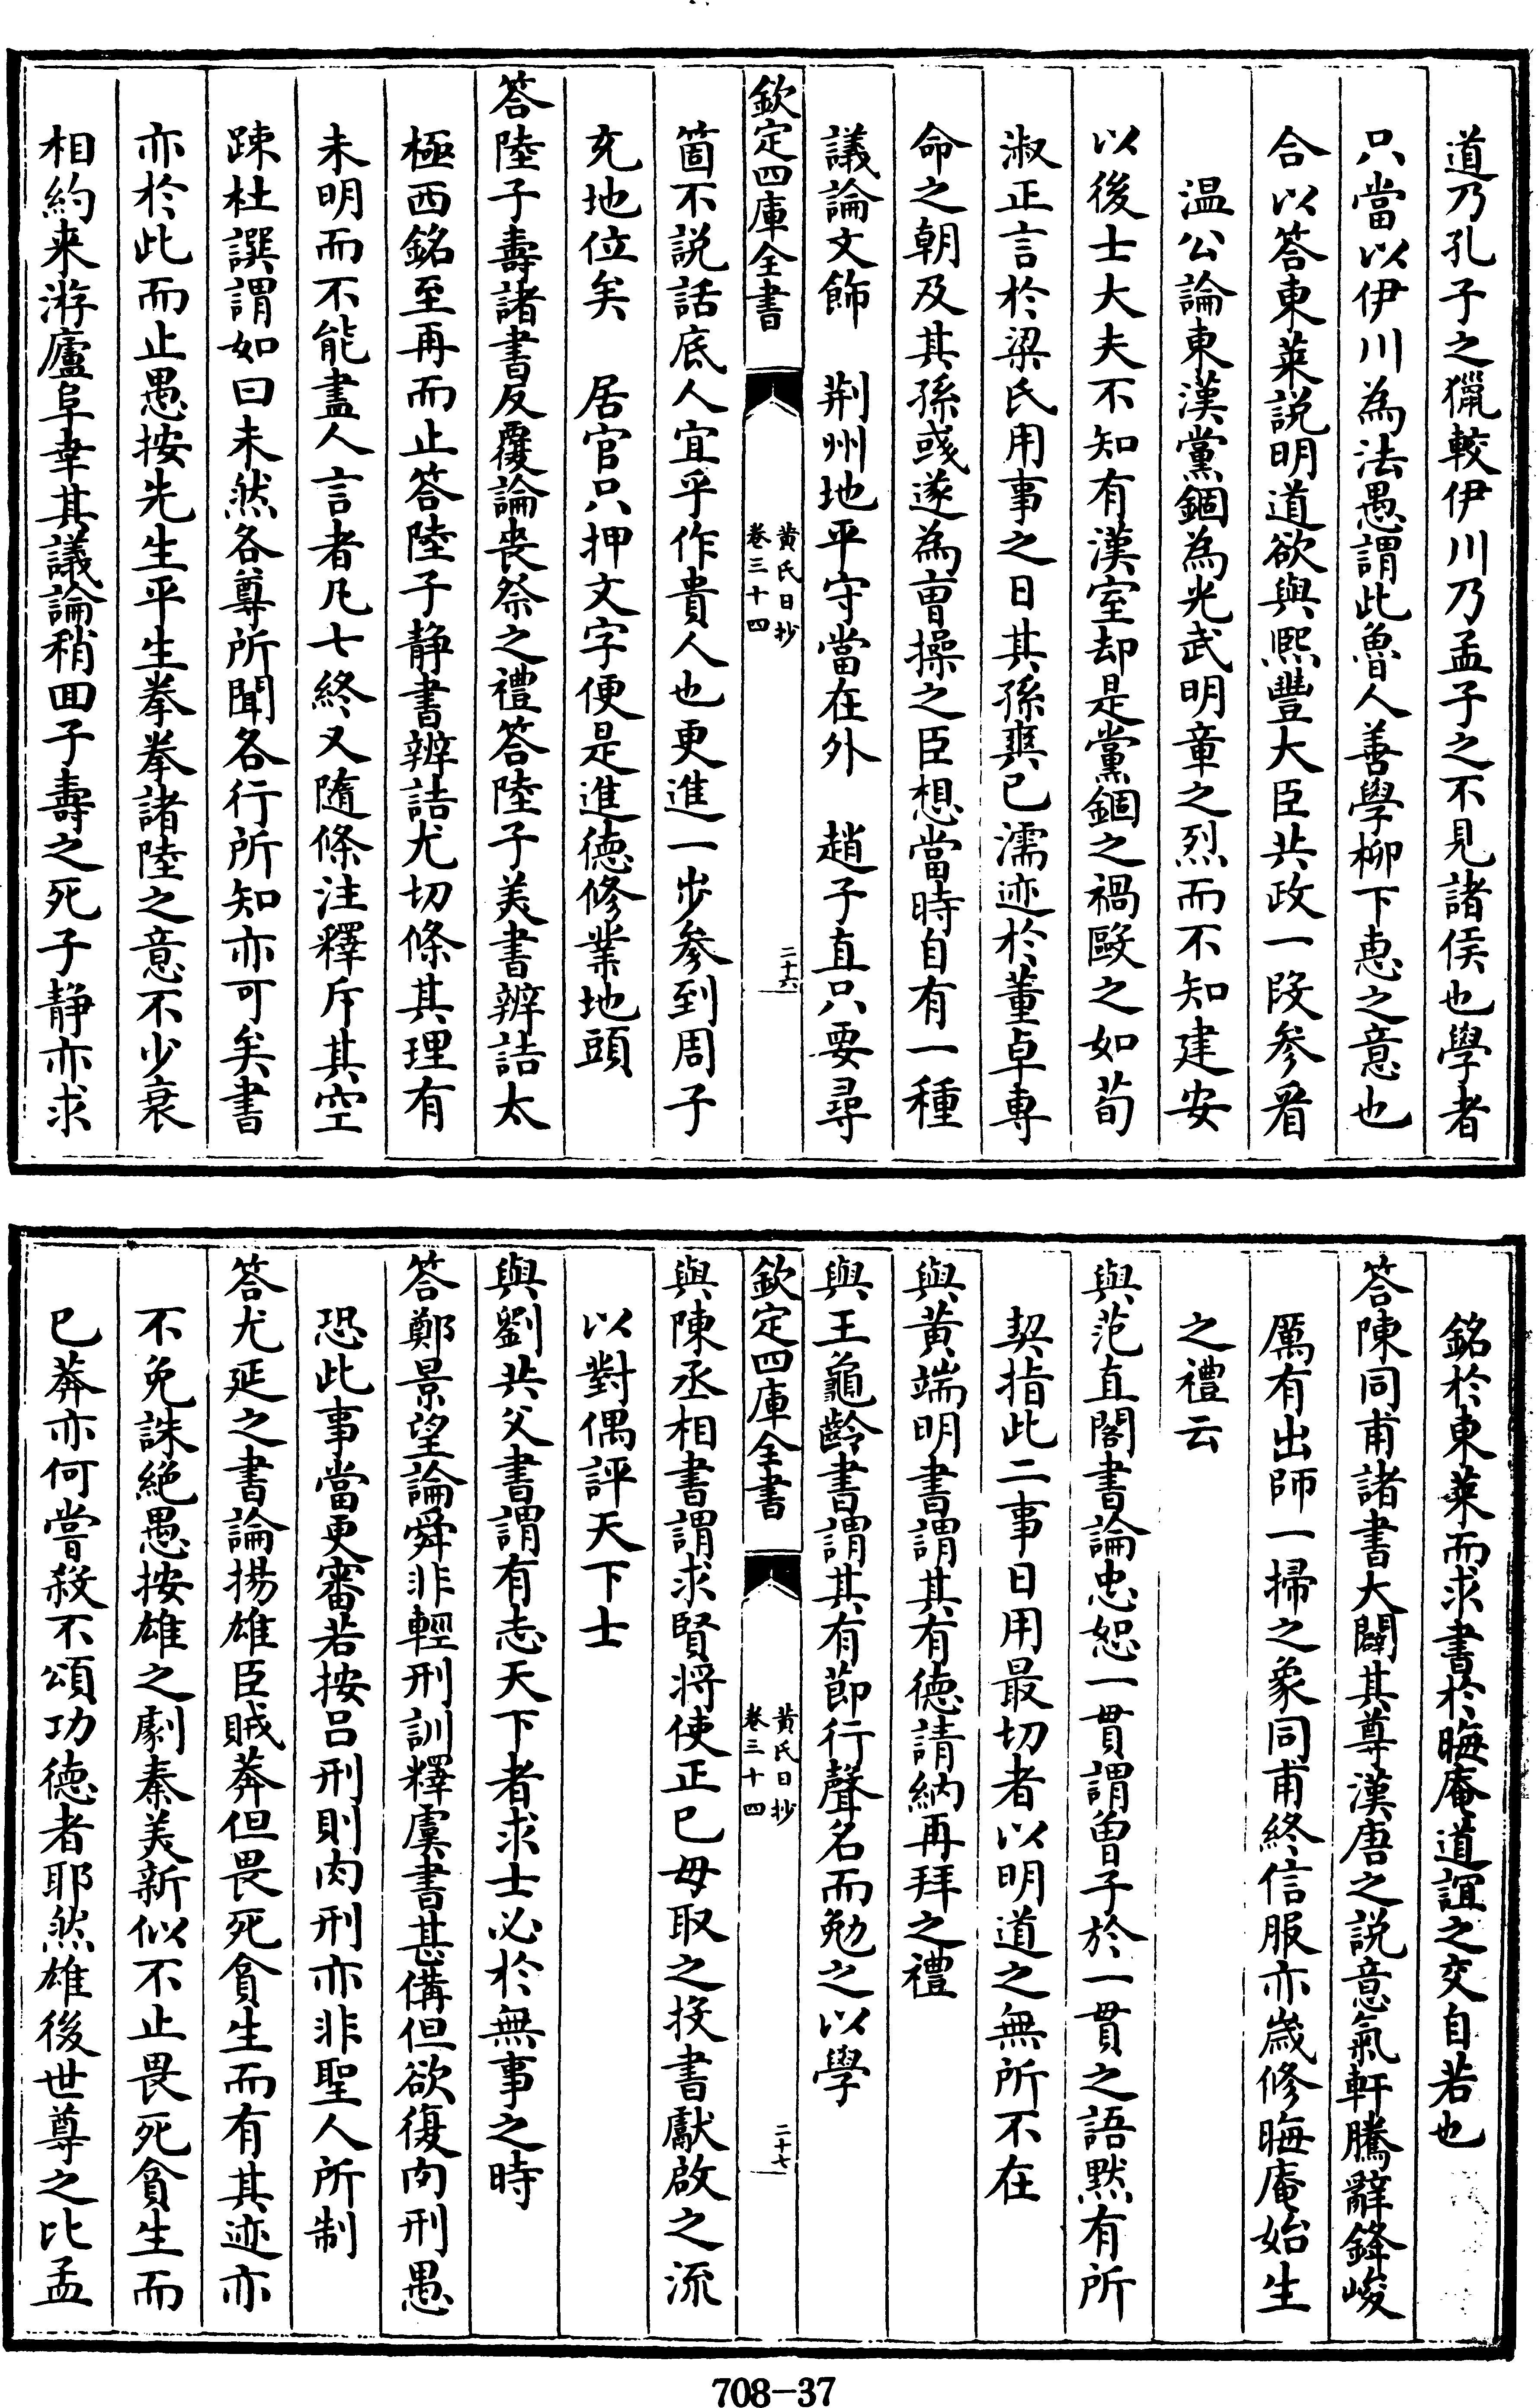 道乃孔子之獵較伊川乃孟子之不見諸侯也學者
只當以伊川為法愚謂此魯人善學柳下惠之意也
合以答東萊説明道欲與熙豐大臣共政一段參看
温公論東漢黨錮為光武明章之烈而不知建安
以後士大夫不知有漢室却是黨錮之禍歐之如荀
淑正言於梁氏用事之日其孫爽已濡迹於董卓專
命之朝及其孫彧遂為曹操之臣想當時自有一種
議論文飾　荆州地平守當在外　趙子直只要尋
欽定四庫全書　黄氏日抄　卷三十四　二十六
箇不説話底人宜乎作貴人也更進一步參到周子
充地位矣　居官只押文字便是進德修業地頭
答陸子壽諸書反覆論喪祭之禮答陸子美書辨詰太
極西銘至再而止答陸子静書辨詰尤切條其理有
未明而不能盡人言者凡七終又隨條注釋斥其空
踈杜譔謂如曰未然各尊所聞各行所知亦可矣書
亦於此而止愚按先生平生拳拳諸陸之意不少衰
相約来游廬阜幸其議論稍回子壽之死子静亦求
銘於東萊而求書於晦庵道誼之交自若也
答陳同甫諸書大闢其尊漢唐之説意氣軒騰辭鋒峻
厲有出師一掃之象同甫終信服亦歳修晦庵始生
之禮云
與范直閣書論忠恕一貫謂曽子於一貫之語默有所
契指此二事日用最切者以明道之無所不在
與黄端明書謂其有德請納再拜之禮
與王龜齡書謂其有節行聲名而勉之以學
欽定四庫全書　黄氏日抄　卷三十四　二十七
與陳丞相書謂求賢将使正已毋取之投書獻啟之流
以對偶評天下士
與劉共父書謂有志天下者求士必於無事之時
答鄭景望論舜非輕刑訓釋虞書甚備但欲復肉刑愚
恐此事當更審若按吕刑則肉刑亦非聖人所制
答尤延之書論揚雄臣賊莽但畏死貪生而有其迹亦
不免誅絶愚按雄之劇秦美新似不止畏死貪生而
已莽亦何嘗殺不頌功德者耶然雄後世尊之比孟
708-37